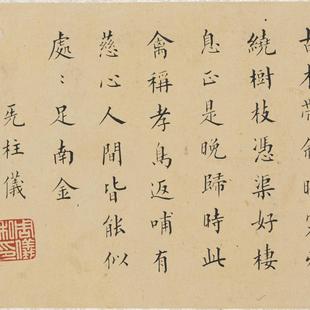 木帶
繞樹枝憑渠好棲
息正是晚歸時此
禽稱孝鳥返哺有
慈心人間皆能似
處〻足南金
柱儀